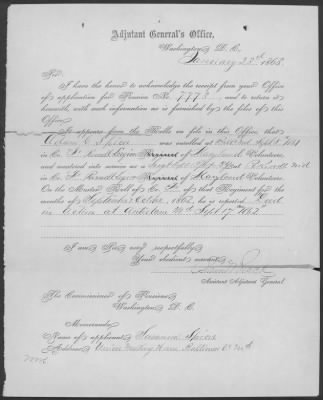 Adjutant General's Office,
Washington, D. C.
January 23rd 1868
Sir:
I have the honor to acknowledge the receipt from your Office
of application for Pension No. 7778, and to return it
herewith, with such information as is furnished by the files of this
Office.
It appears from the Rolls on file in this Office, that
was enrolled at
in Co. Purnell Legion Regiment of Maryland Volunteers,
and mustered into service as a
in Co. Purnell Legion Regiment of Maryland Volunteers.
On the Muster Roll of Co. of that Regiment, for the
months of September October, 1862, he is reported
in Action at Antietam Md Sept 17th 1862
I am, Sir, very respectfully,
Your obedient servant,
Assistant Adjutant General.
The Commissioner of Pensions,
Washington, D. C.
Memoranda:
Name of applicant, Susanna
Address, Union Meeting House Baltimore Co Md